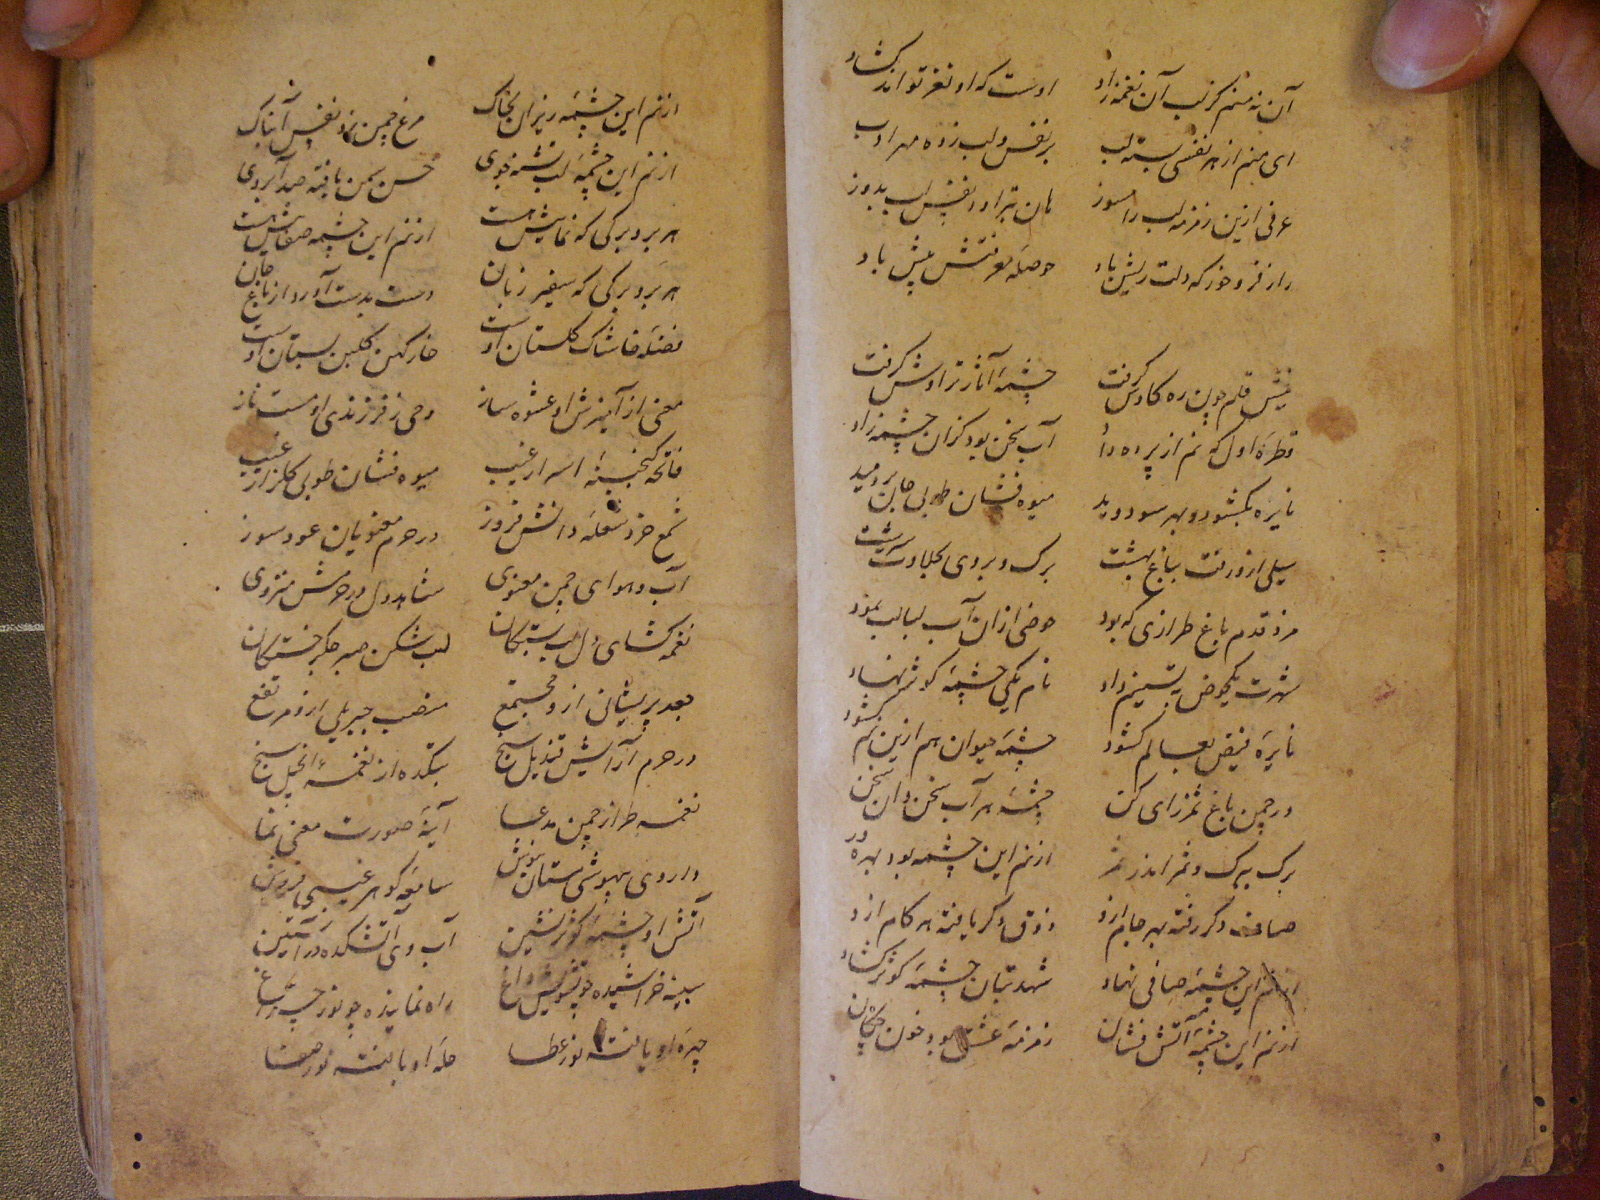 آن نه منم کز لب آن نغمه زاد اوست که او نغز تواند گشاد
ای منم از هر نفسی بسته لب بر نفس و لب زده مهر ادب
عرفی ازین زمزمه لب را مسوز هان بتراود نفس لب بدوز
راز فرو خور که دلت ریش باد حوصله معرفتش بیش باد
نیش قلم چون ره کاوش گرفت چشمه آثار تراوش گرفت
قطره اول که نم از پرده داد آب سخن بود کزان چشمه زاد
نایره بگشود و بهر سو دوید میوه فشان طوبی جان بردمید
سیلی ازو رفت بباغ بهشت برک و بروی بحلاوت سرشت
مزد قدم باغ طرازی که بود حوضی ازان آب لبالب نمود
شهرت یک حوض بتسنیم داد نام یکی چشمه کوثر نهاد
نایره فیض بعالم گشود چشمه حیوان هم ازین نم گشود
در چمن باغ ثمرزای کن چشمه هر آب سخن دان سخن
برک ببرک و ثمر اندر ثمر از نم این چشمه بود بهره ور
صاف دگر رفته بهر جام ازو ذوق دگر یافته هر کام ازو
از نم این چشمه صافی نهاد شهد تبان چشمه کوثر گشاد
از نم این چشمه آتش فشان زمزمه عشق بود خون چکان
از نم این چشمه ریزان بخاک مرغ چمن زد نفس آبناک
از نم این چشمه لب تشنه جوی حسن سمن یافته صد آبروی
هر بر و برکی که نمایش هست از نم این چشمه صفایش هست
هر بر و برکی که سفیر زبان دست بدست آورد از باغ جان
فضله خاشاک گلستان اوست خار کهن گلبن بستان اوست
معنی از آمیزش او عشوه ساز وحی ز فرزندی او مست ناز
فاتحه گنجینه اسرار غیب میوه فشان طوبی گلزار غیب
شمع خرد شعله دانش فروز در حرم معنویان عود سوز
آب و هوای چمن معنوی شاهد دل در حرمش منزوی
نغمه گشای دل لب بستگان لب شکن صبر جگر خستگان
جعد پریشانی ازو مجتمع منصب جبریلی ازو مرتفع
در حرم آرایش قندیل سنج بتکده از نغمه انجیل سنج
نغمه طراز چمن مدعا آینه صورت معنی نما
داروی بیهوشی ستان هوش سامعه گوهر غیبی فروش
آتش او چشمه کوثر نشین آب وی آتشکده در آستین
سینه خراشیده چو تشویش داغ راه نماینده چو نور چراغ
چهره او یافته نور عطا حله او بافته نور صفا